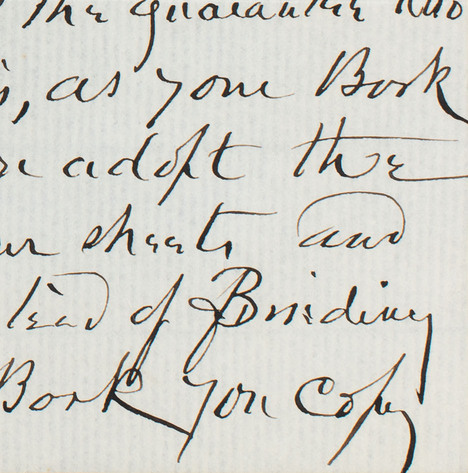 the guarantee
, as your Book
adopt the
sheets and
lead of Binding
Book you Copy